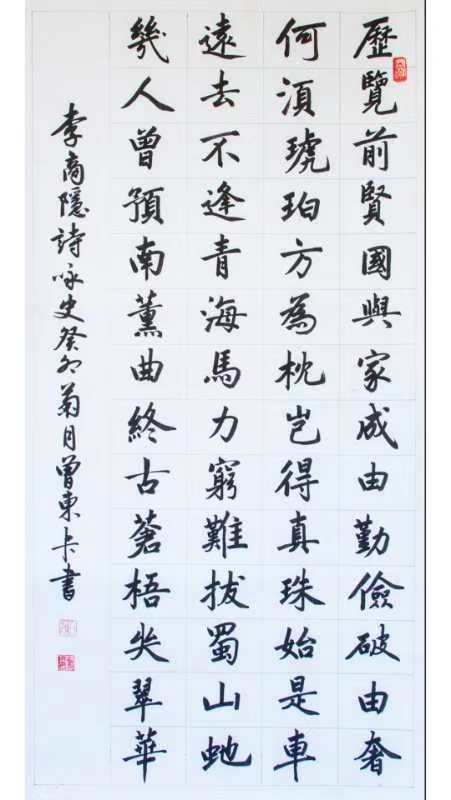 歷覽前賢國與家成由勤儉破由奢
何湏琥珀方為枕豈得真珠始是車
遠去不逢青海馬力窮難拔蜀山虵
幾人曾預南薰曲終古蒼梧失翠華
李商隱詩咏史癸卯菊月曾東卡書